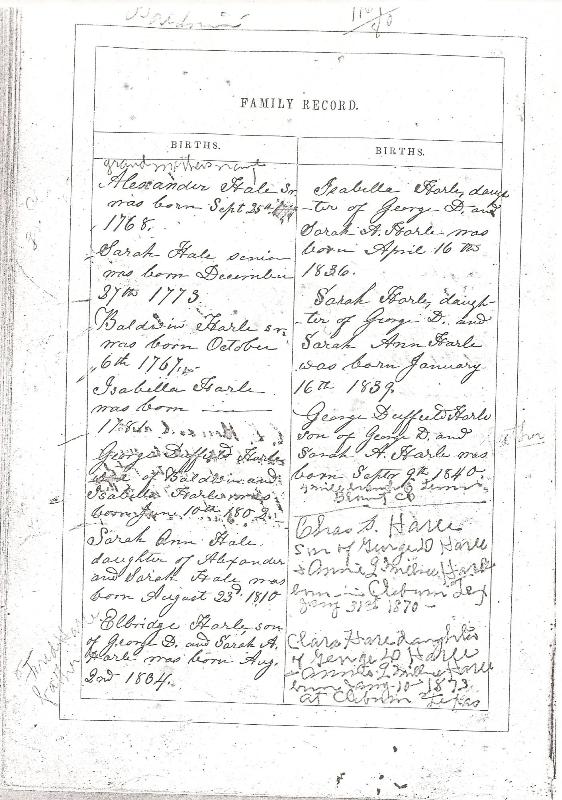 Baldwin
FAMILY RECORD.
BIRTHS.
grandmothers
Alexander Hale Sr.
was born Sept 25th
1768.
Sarah Hale senior
was born December
27th 1773.
Baldwin Harle sr.
was born October
6th 1767.
Isabella Harle
was born
George Duffield Harle
of Baldwin and
Isabella Harle was
born June 10th 1802.
Sarah Ann Hale
daughter of Alexander
and Sarah Hale was
born August 23d 1810
Elbridge Harle, son
of George D. and Sarah A.
Harle was born Aug.
2nd 1834.
BIRTHS.
Isabella Harle, daugh
-ter of George D. and
Sarah A. Harle was
born April 16th
1836.
Sarah Harle, daugh-
-ter of George D. and
Sarah Ann Harle
was born January
16th 1839.
George Duffield Harle
son of George D. and
Sarah A. Harle was
born Septr 9th 1840.
Chas S. Harle
son of George D Harle
& Annie L Harle
born in Cliburn Tex
Jany 31st 1870
Clara Harle daughter
of George D Harle
Annie L Harle
born Jany 10 1873
at Cliburn Texas
father